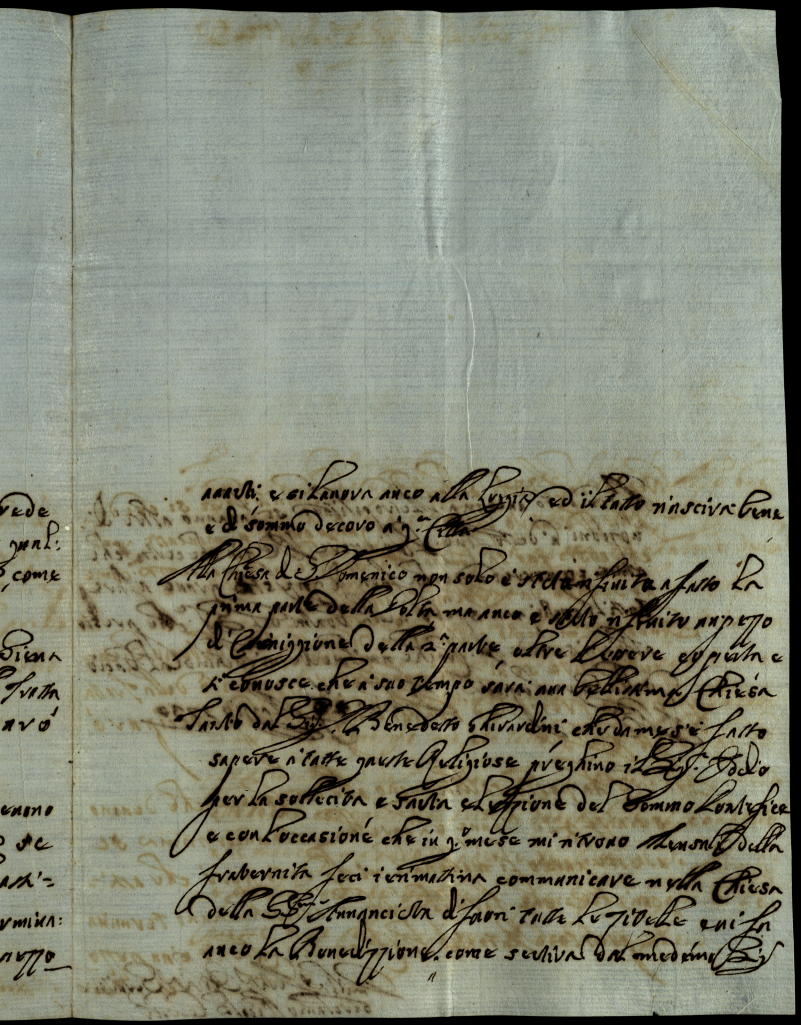 vede
qual:
come
Siena
frutta
avrò
e si lavora anco alla ed il tutto riuscirà bene
e di sommo decoro a q.ta Città
Alla Chiesa di S. Domenico non solo è stata finita a fatto la
prima parte della Volta ma anco è stato finito un pezzo
di della 2.a parte oltre l'avere coperta e
si conosce che a suo tempo sarà una bellissima Chiesa
Tanto dal Sig.r Benedetto Ghirardini che da me s'è fatto
sapere a tutte queste Religiose preghino il Sig.r Iddio
per la sollecita e santa elezzione del Sommo Pontefice
e con l'occasione che in q.o mese mi ritrovo Mensale della
fraternita feci ier mattina communicare nella Chiesa
della SS. Annunciata di fuori tutte le e vi fu
anco la Benedizzione come sentirà dal medemo Sig.